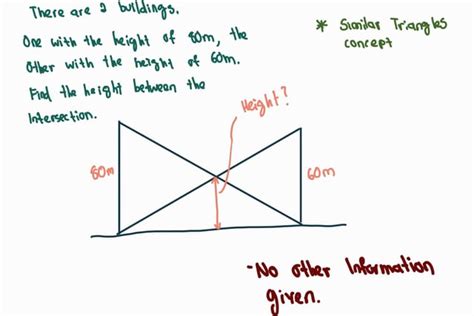 There are 2 buildings.
One with the height of 80m, the
other with the height of 60m.
Find the height between the
intersection.
* Similar Triangles
concept
Height?
80m
60m
- No other Information
given.